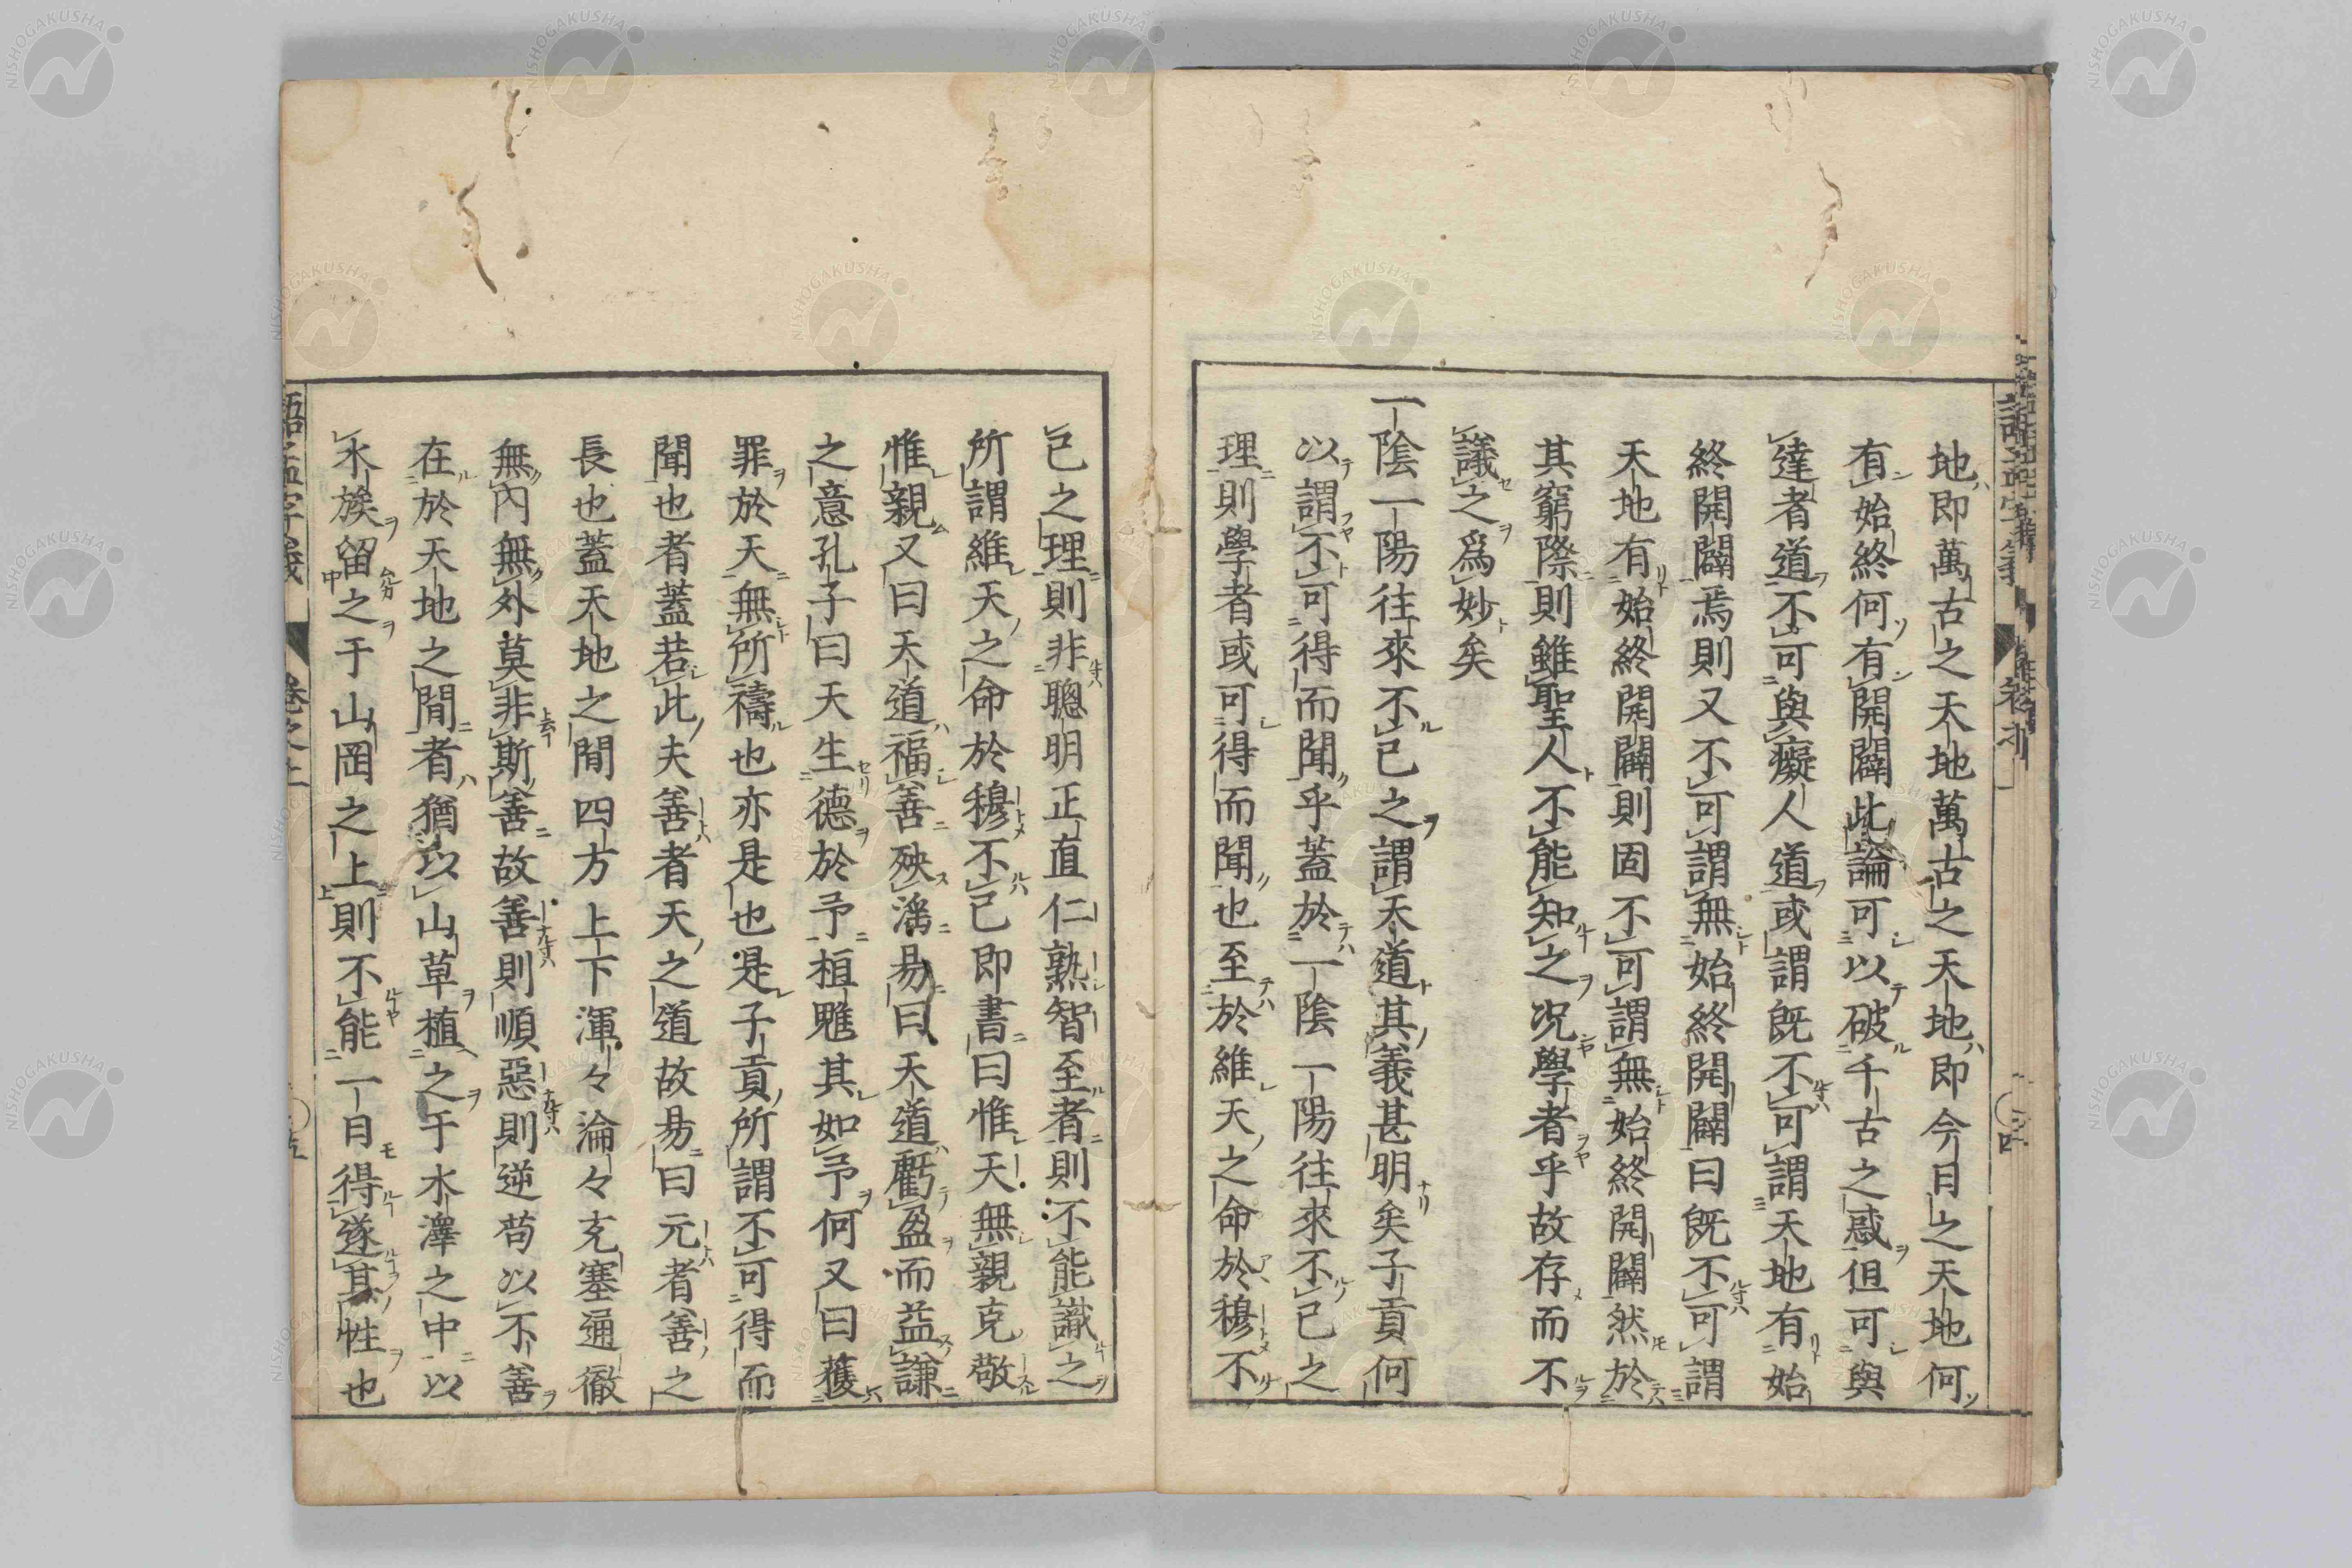 地即萬古之天地萬古之天地即今日之天地何
有始終何有開闢此論可以破千古之惑但可與
達者道不可與癡人道或謂既不可謂天地有始
終開闢焉則又不可謂無始終開闢曰既不可謂
天地有始終開闢則固不可謂無始終開闢然於
其窮際則雖聖人不能知之况學者乎故存而不
議之爲妙矣
一陰一陽往來不已之謂天道其義甚明矣子貢何
以謂不可得而聞乎蓋於一陰一陽往來不已之
理則學者或可得而聞也至於維天之命於穆不
已之理則非聰明正直仁熟智至者則不能識之
所謂維天之命於穆不已即書曰惟天無親克敬
惟親又曰天道福善殃滛易曰天道虧盈而益謙
之意孔子曰天生德於予桓魋其如予何又曰獲
罪於天無所禱也亦是也是子貢所謂不可得而
聞也者蓋若此夫善者天之道故易曰元者善之
長也蓋天地之間四方上下渾々淪々充塞通徹
無内無外莫非斯善故善則順惡則逆苟以不善
在於天地之間者猶以山草植之于水澤之中以
水族留之于山岡之上則不能一日得遂其性也